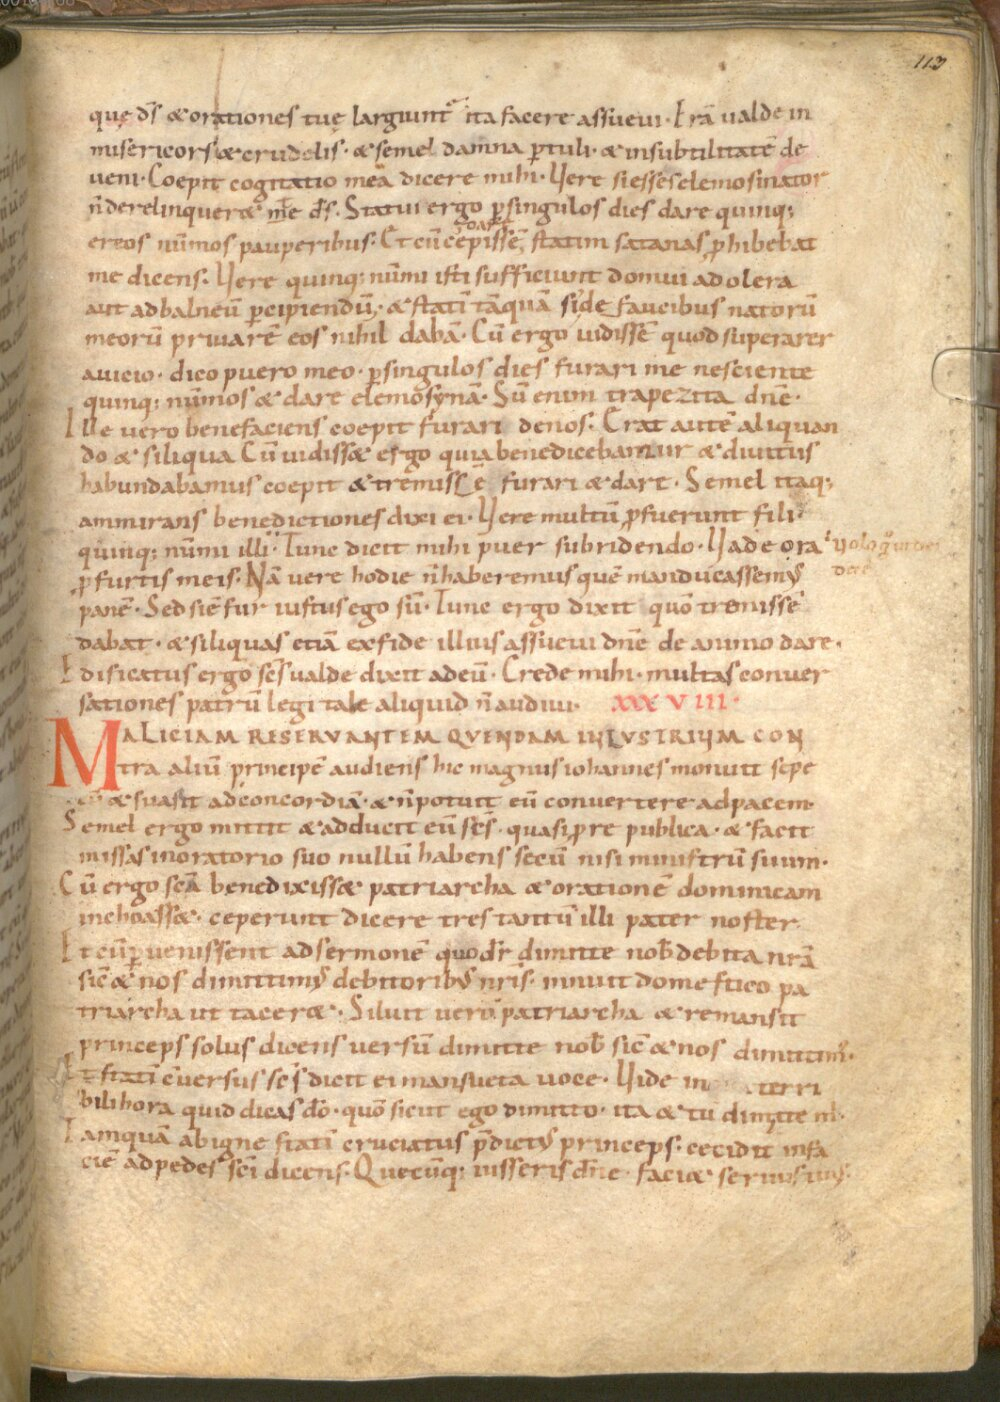 113
quę dſ̄ & orationes tuę largiunt᷑ ita facere assueui· Erā ualde in
misericors & crudelis· & semel damna ꝑtuli· & insubtilitatē de
ueni· Coepit cogitatio mea dicere mihi· Uere siesses elemosinator
n̄ derelinquer& me d̄s· Statui ergo ꝑsingulos dies dare quinq;
ereos nūmos pauperibus· Et cū cępissē dare statim satanas ꝓhibebat
me dicens· Uere quinq; nūmi isti sufficiunt domui adolera
aut adbalneū ꝑcipiendū· & statī tāquā side faucibus natorū
meorū priuarē eos nihil dabā· Cū ergo uidissē quod superarer
auicio· dico puero meo· ꝑsingulos dies furari me nesciente
quinq; nūmos & dare elemosynā· Sū enim trapezita dn̄e·
Ille uero benefaciens coepit furari denos· Erat autē aliquan
do & siliqua Cū uidiss& ergo quia benedicebamur & diuitiis
habundabamus coepit & tremissē furari & dare· Semel itaq;
ammirans benedictiones dixi ei· Uere multū ꝓfuerunt fili·
quinq; nūmi illi· Tunc dicit mihi puer subridendo· Uade ora
ꝓ furtis meis· Nā uere hodie n̄ haberemus quē manducassemꝰ
panē· Sed siē fur iustus ego sū· Tunc ergo dixit quō tremissē
dabat· & siliquas etiā exfide illius assueui dn̄e de animo dare·
Edificatus ergo sc̄s ualde dixit adeū· Crede mihi· multas conuer
sationes patrū legi tale aliquid n̄ audiui· XXXVIII·
MALICIAM RESERVANTEM QVENDAM INLVSTRIUM CON
tra aliū principē audiens hic magnus iohannes monuit sepe
eū & suasit adconcordiā· & n̄ potuit eū conuertere adpacem·
Semel ergo mittit & adducit eū sc̄s· quasi ꝓ re publica· & facit
missas inoratorio suo nullū habens secū nisi ministrū suum·
Cū ergo scā benedixiss& patriarcha & orationē dominicam
inchoass&· ceperunt dicere tres tantū illi pater noster
Et cū ꝑuenissent adsermonē quo dr̄ dimitte nob̄ debita nr̄a
siē & nos dimittimꝰ debitoribꝰ nr̄is· innuit domestico pa
triarcha ut tacer&· Siluit uero patriarcha & remansit
princeps solus dicens uersū dimitte nob̄ siē & nos dimittimꝰ·
Et statī cuersus sc̄s dicit ei mansueta uoce· Uide in terri
bili hora quid dicas do· quō sicut ego dimitto· ita & tu dimitte m̄·
Tamquā abigne statī cruciatus p̄dictꝰ princeps· cecidit infa
ciē adpedes sc̄i dicens· Quecūq; iusseris dn̄e· faci& seruus tuus·